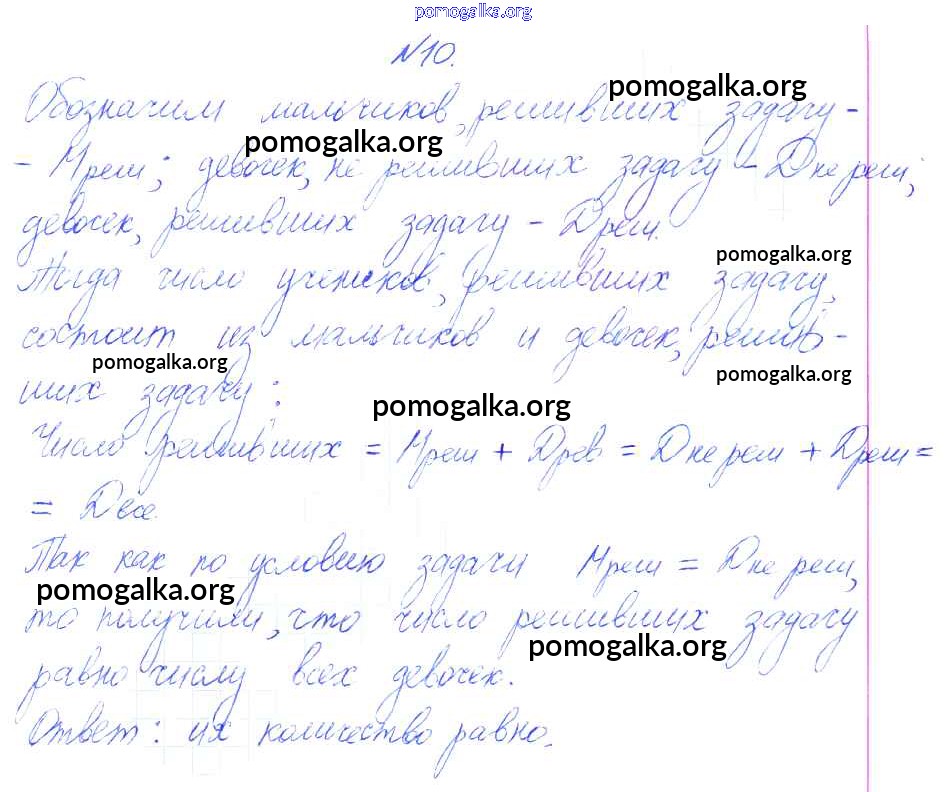 pomogalka.org
№10.
pomogalka.org
Обозначим мальчиков, решивших задачу -
pomogalka.org
- Мреш; девочек, не решивших задачу - Дне реш;
девочек, решивших задачу - Дреш.
pomogalka.org
Тогда число учеников, решивших задачу,
состоит из мальчиков и девочек, решив-
pomogalka.org
pomogalka.org
ших задачу:
pomogalka.org
Число решивших = Мреш + Древ = Дне реш + Дреш =
= Двсе
Так как по условию задачи Мреш = Дне реш,
pomogalka.org
то получили, что число решивших задачу
pomogalka.org
равно числу всех девочек.
Ответ: их количество равно.